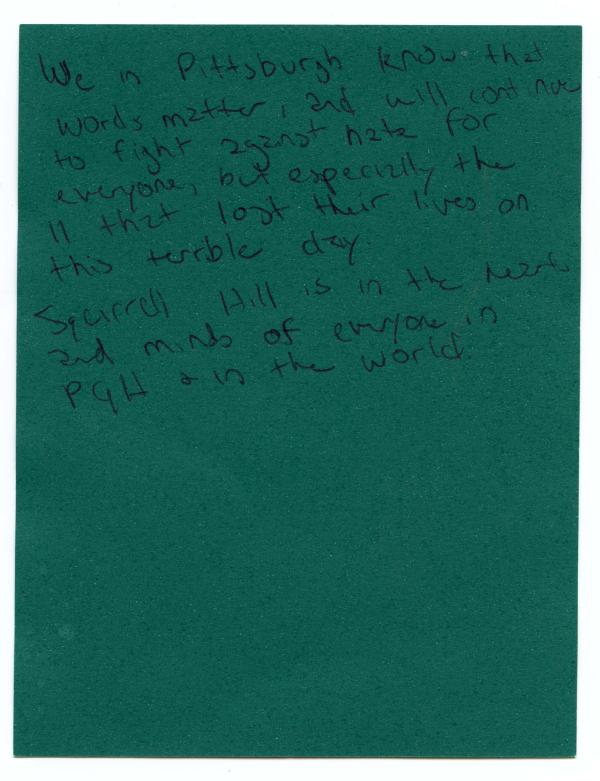 We in Pittsburgh know that
words matter, and will continue
to fight against hate for
everyone, but especially the
11 that lost their lives on
this terrible day.
Squirrell Hill is in the hearts
and minds of everyone in
PGH & in the world.